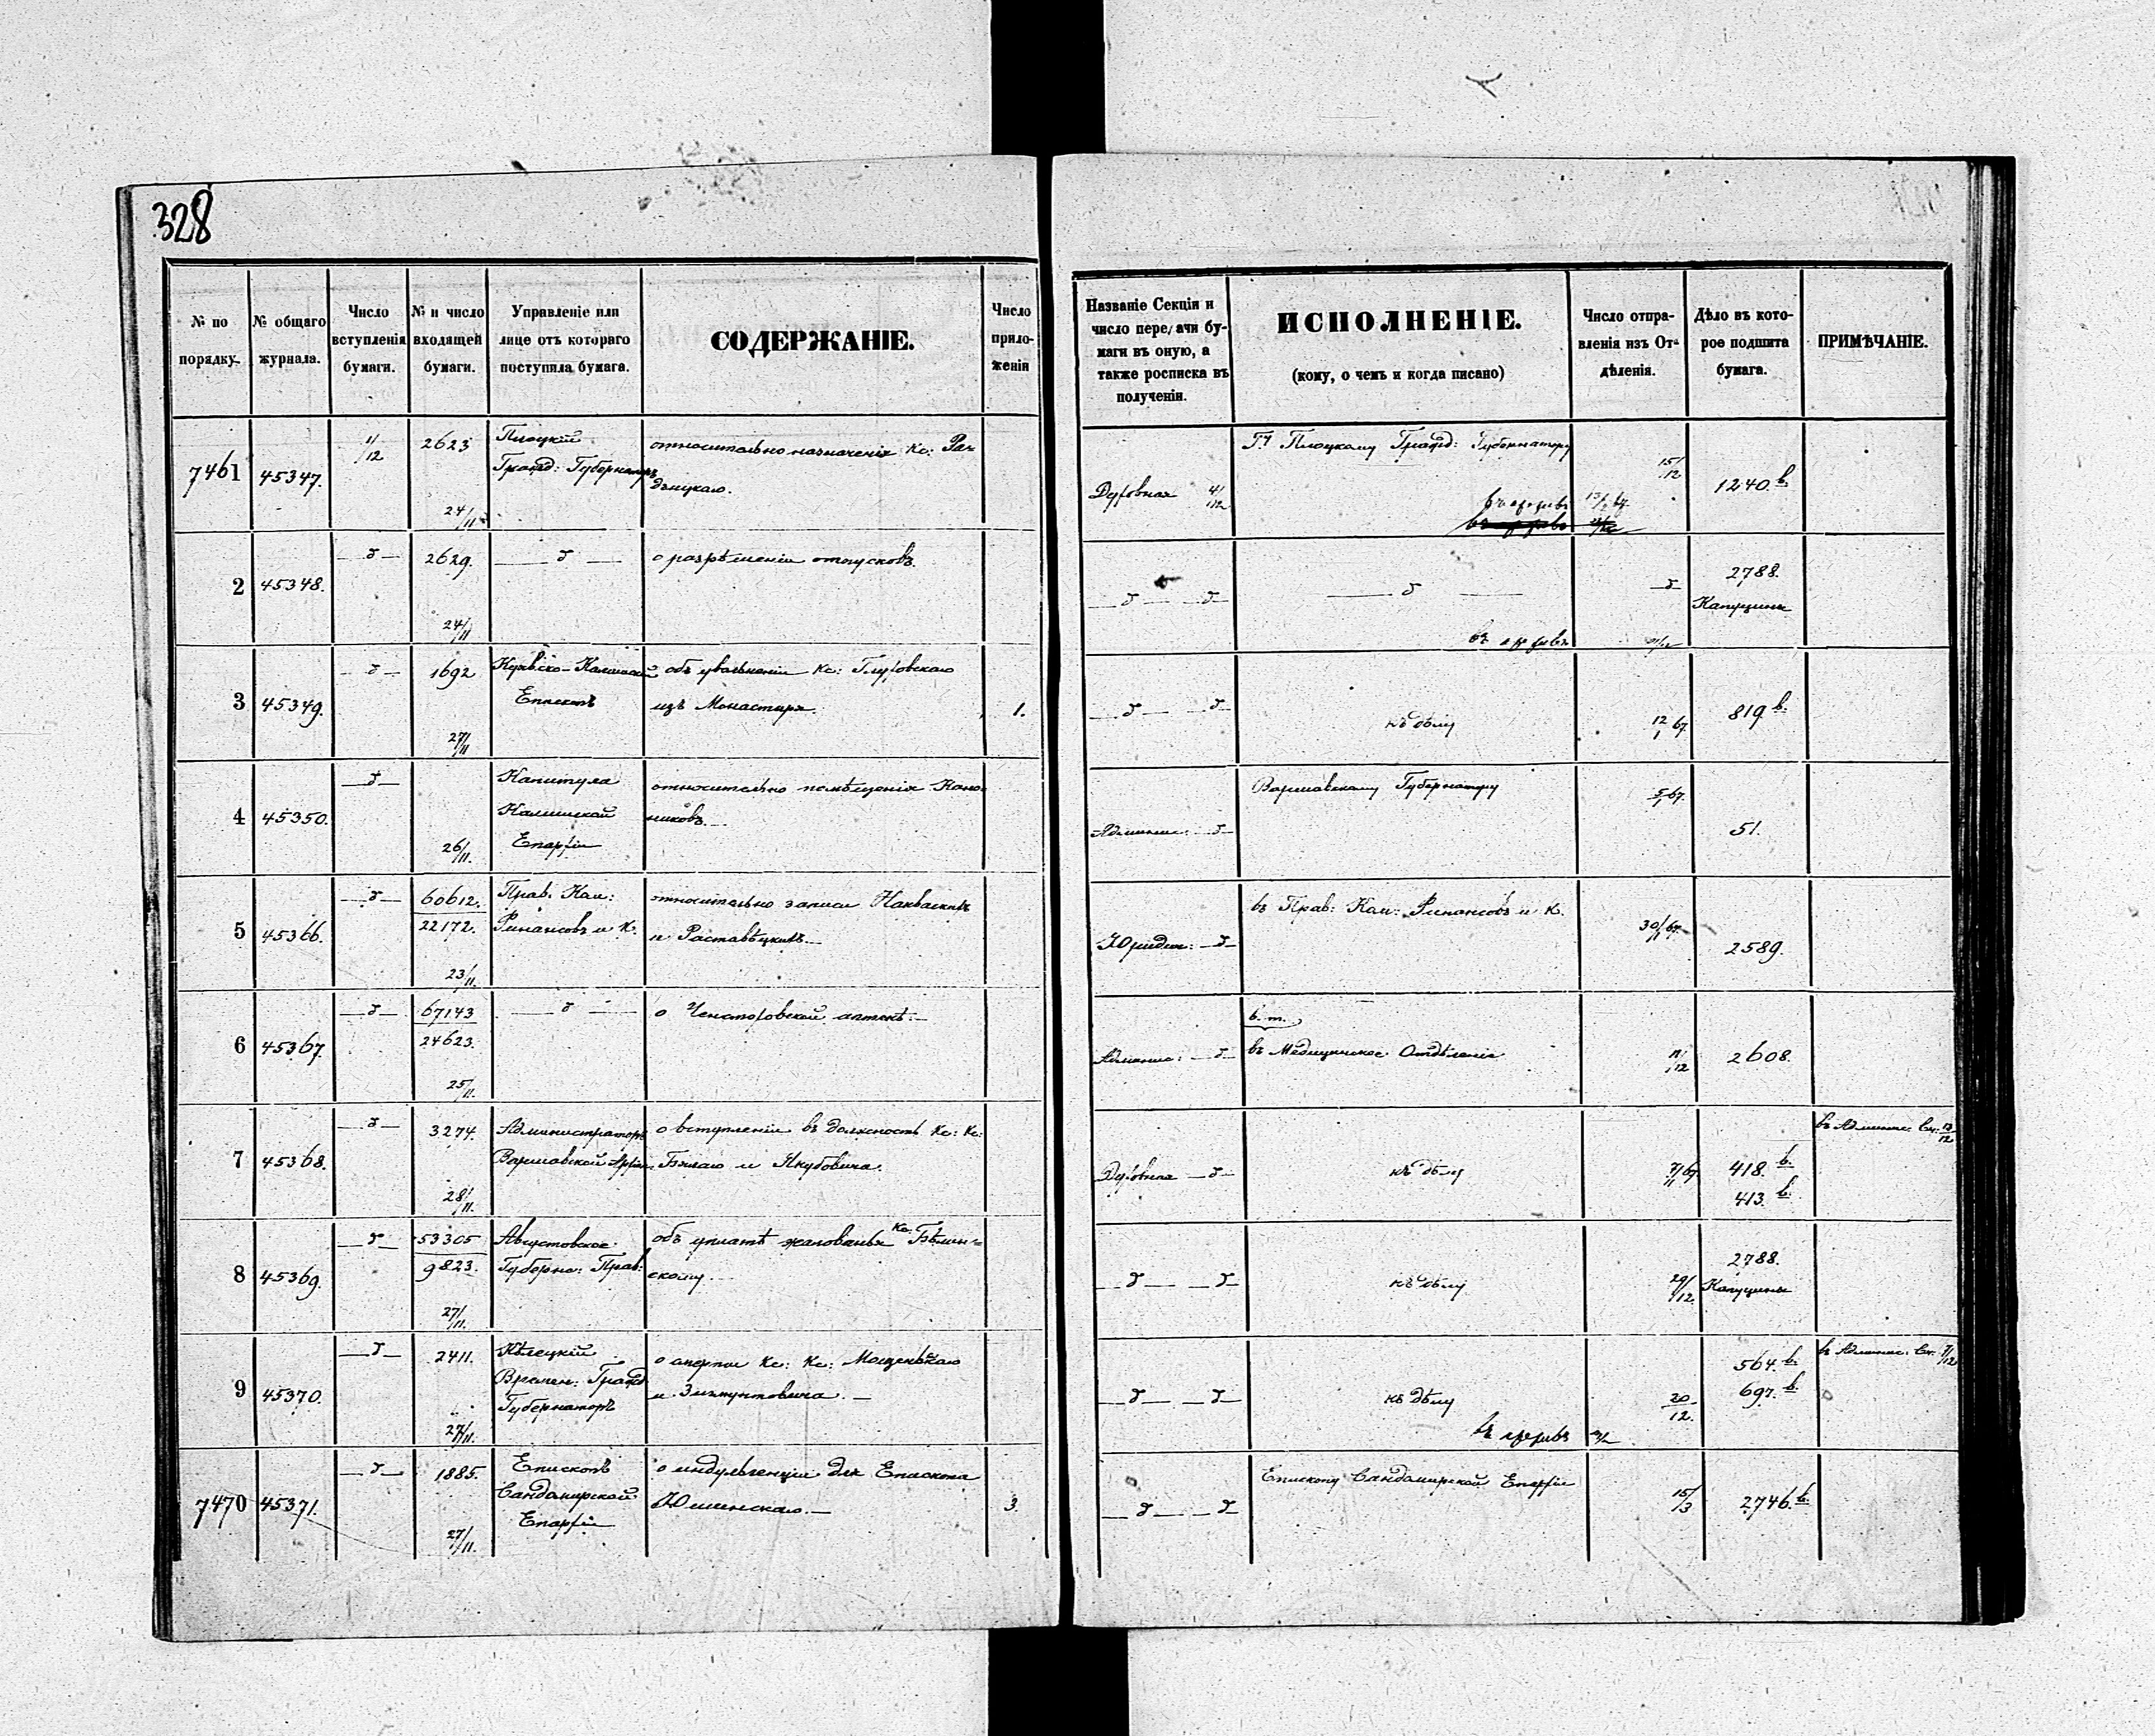 328
№ по порядку.
№ общаго журнала.
Число вступленія бумаги.
№ и число входящей бумаги.
Управленіе или лице отъ котораго поступила бумага.
СОДЕРЖАНІЕ.
Число прило- женій
Названіе Секціи и число передачи бу- маги въ оную, а также росписка въ полученіи.
ИСПОЛНЕНІЕ.
(кому, о чемъ и когда писано)
Число отпра- вленія изъ От- дѣленія.
Дѣло въ кото- рое подшита бумага.
ПРИМѢЧАНІЕ.
7461 45347. 1/12 2623 24/11
Плоцкій
Гражд: Губернаторъ
относительно назначенія Кс: Ра-
дзицкаго.
Духовная 4/12
Гну Плоцкому Гражд: Губернатору
въ архивъ
15/12 1240.в.
2 45348. —d— 2629. 24/11 —d—
о разрѣшеніи отпусковъ.
—d— —d— —d— —d
въ архивъ
2788.
Капуцины
3 45349. —d— 1692 27/11
Куявско-Калишскій
Епископъ
объ увольненіи Кс: Глуховскаго
изъ Монастыря.
1.
—d— —d— къ дѣлу 12/1 67. 819.в.
4 45350. —d— 26/11
Капитула
Калишской
Епархіи
относительно помѣщенія Кано-
никовъ.
Админис: —d—
Варшавскому Губернатору
5/1 67. 51.
5 45366. —d— 60612. 22172. 23/11.
Прав. Ком:
Финансовъ и К.
относительно записи Накваскихъ
Юридич: —d—
въ Прав: Ком: Финансовъ и К.
30/1 67. 2589.
6 45367. —d— 67143 24623. 25/11. —d—
о Ченстоховской аптекѣ.—
Админис: —d—
в. т.
въ Медицинское Отдѣленіе
11/12 2608.
7 45368. —d— 3274. 28/11.
Администраторъ
Варшавской Архіеп.
о вступленіи въ должность Кс: Кс:
Бялаго и Якубовича.
Духовная —d— къ дѣлу
418.в.
413.в.
въ Админис. Сек: 13/12
8 45369. —d— 53305 9823. 27/11.
Августовское
Губернс: Прав:
объ уплатѣ жалованья Кс. Бѣлин-
скому.
—d— —d— къ дѣлу 29/12.
2788.
Капуцины
9 45370. —d— 2411. 27/11.
Кѣлецкій
Времен: Гражд
Губернаторъ
о смерти Кс: Кс:
и Зигмунтовича.—
—d— —d— къ дѣлу 20/12.
въ архивъ
564.в.
697.в.
въ Админис. Сек: 7/12
7470 45371. —d— 1885. 27/11.
Епископъ
Сандомирской
Епархіи
о индульгенціи для Епископа
Юшинскаго.—
3.
—d— —d
Епископу Сандомирской Епархіи
15/3 2746.в.